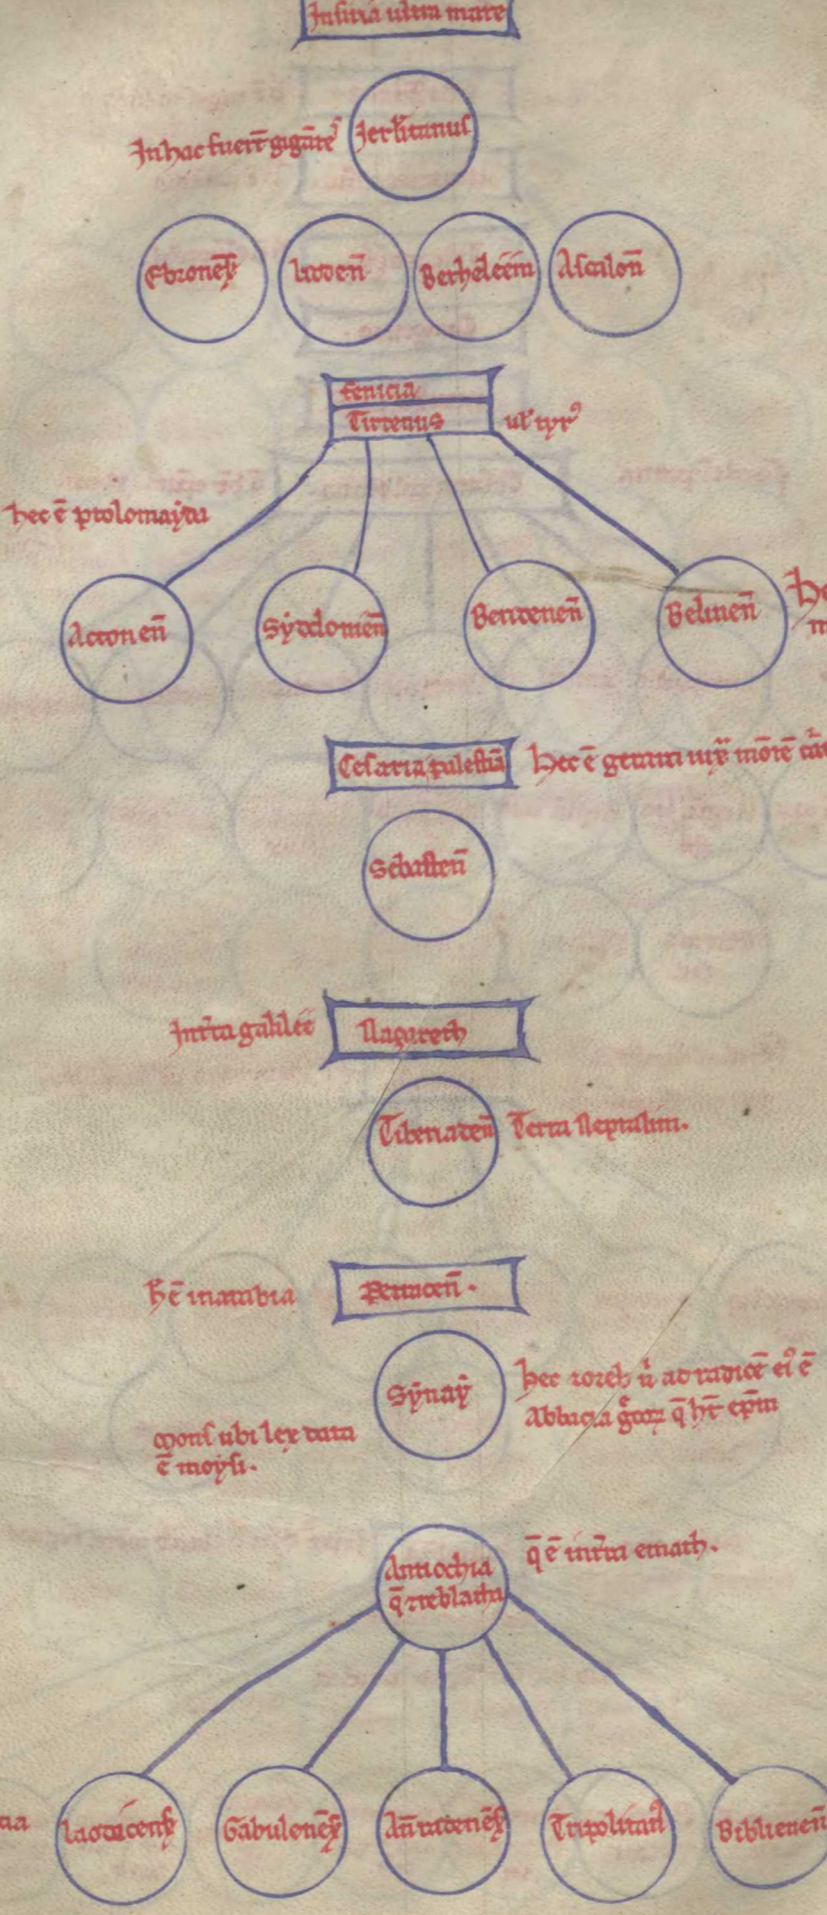 Insula ultra mare
In hac fuerūt gigātes
Jerl'itanus
Ebronēs
Liddeñ
Bethéleem
Ascaloñ
Fenicia
Tirrenus
ul' tyrꝰ
hec ē ptolomayda
Acconeñ
Sydonieñ
Beritenen̄
Belineñ
He
Cesaria palestin̄
Hec ē
Sebasteñ
Intͣ galilee
Nazareth
Tiberiadeñ
Terra Neptalim.
h̄ ē in arabia
Petraceñ.
Synay
hec ē
Abbacia
q̄ ht̄ ep̄m
Mons ubi lex data
ē moysi.
Antiochia
q̄ reblatha
q̄ ē in terra emath.
Laodicens
Gabulonēs
Tripolitanꝰ
Biblieneñ